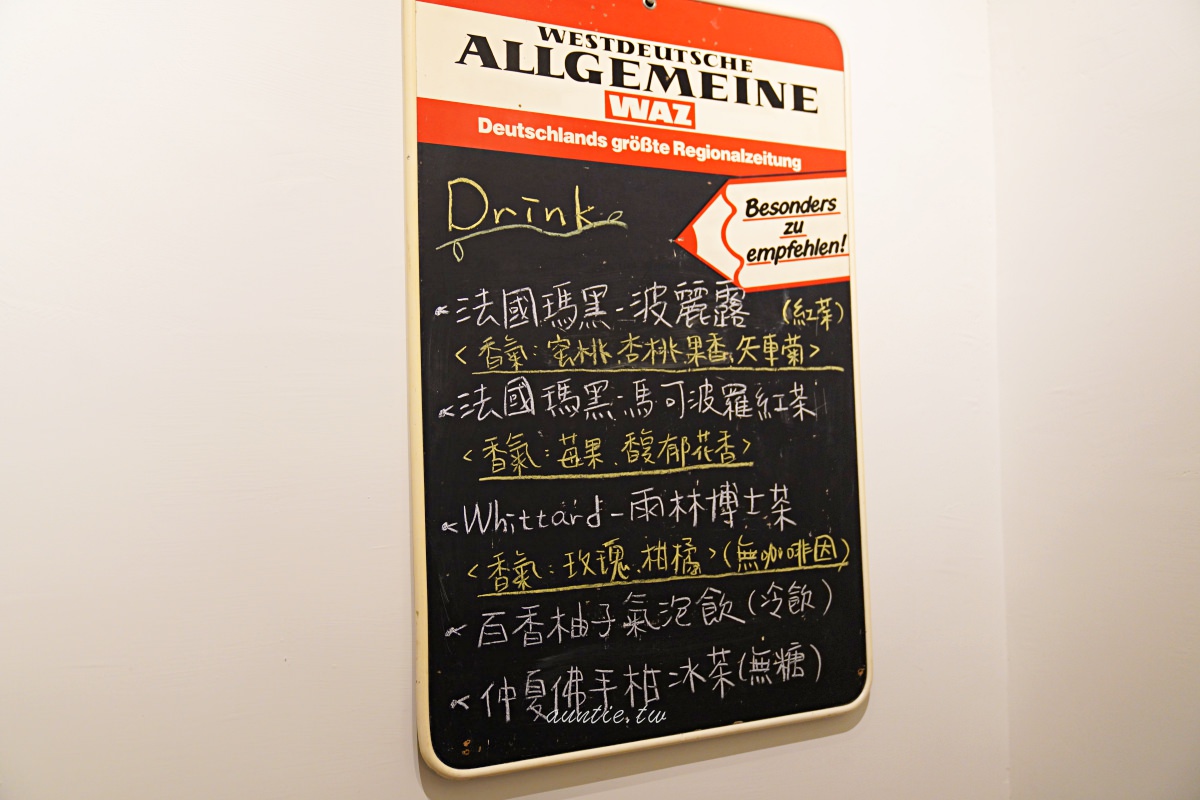 WESTDEUTSCHE
ALLGEMEINE
WAZ
Deutschlands größte Regionalzeitung
Besonders
zu
empfehlen!
Drink
法國瑪黑-波麗露 (紅茶)
<香氣:蜜桃.杏桃.果香.矢車菊>
法國瑪黑-馬可波羅紅茶
<香氣:莓果.馥郁花香>
Whittard-雨林博士茶
<香氣:玫瑰.柑橘>(無咖啡因)
百香柚子氣泡飲(冷飲)
仲夏佛手柑冰茶(無糖)
auntie.tw